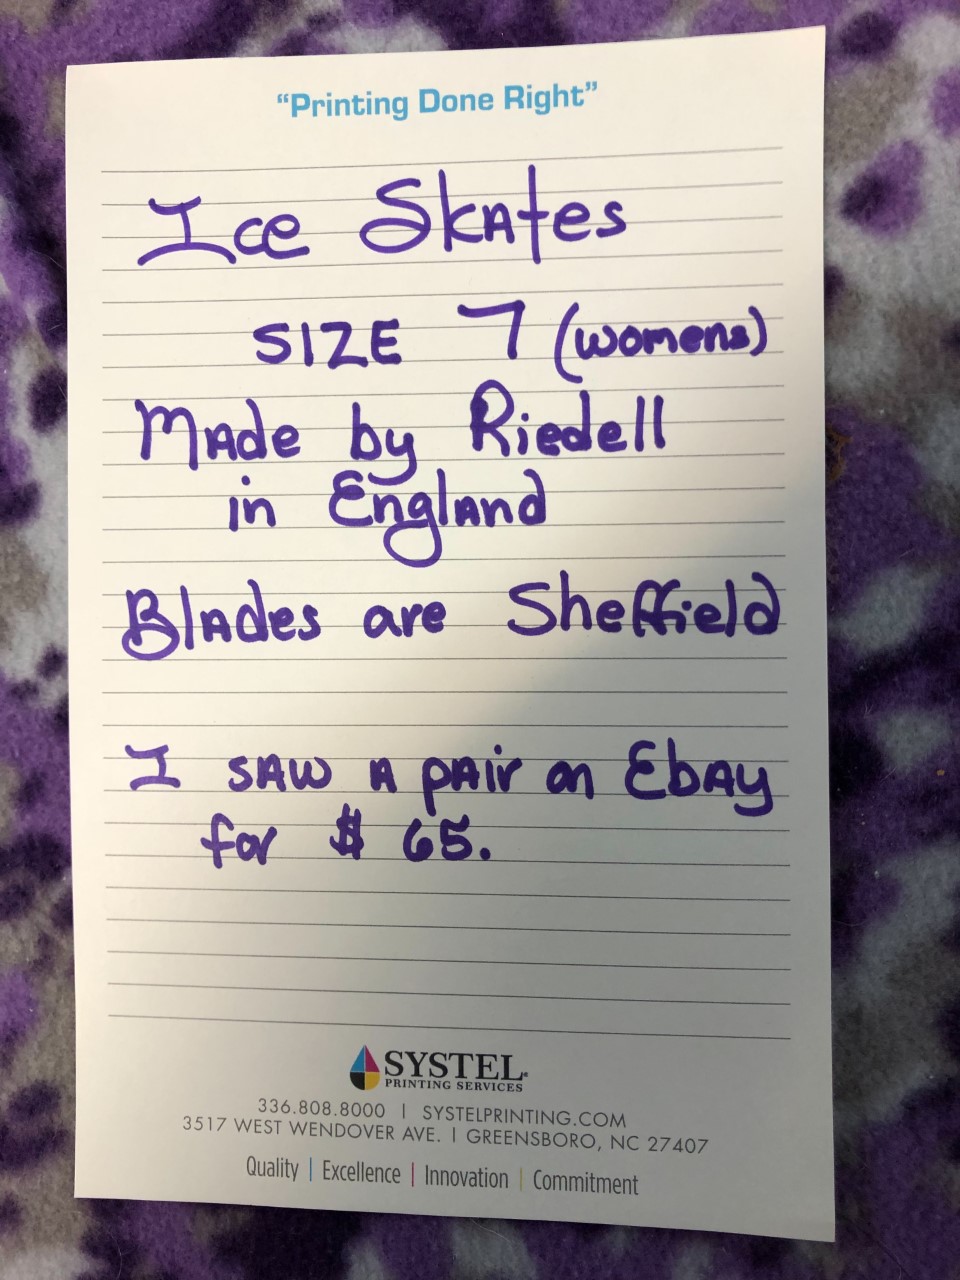 "Printing Done Right"
Ice Skates
SIZE 7 (womens)
Made by Riedell
in England
Blades are Sheffield
I SAW A pAir on EbAy
for $ 65.
SYSTEL®
PRINTING SERVICES
336.808.8000 | SYSTELPRINTING.COM
3517 WEST WENDOVER AVE. | GREENSBORO, NC 27407
Quality | Excellence | Innovation | Commitment